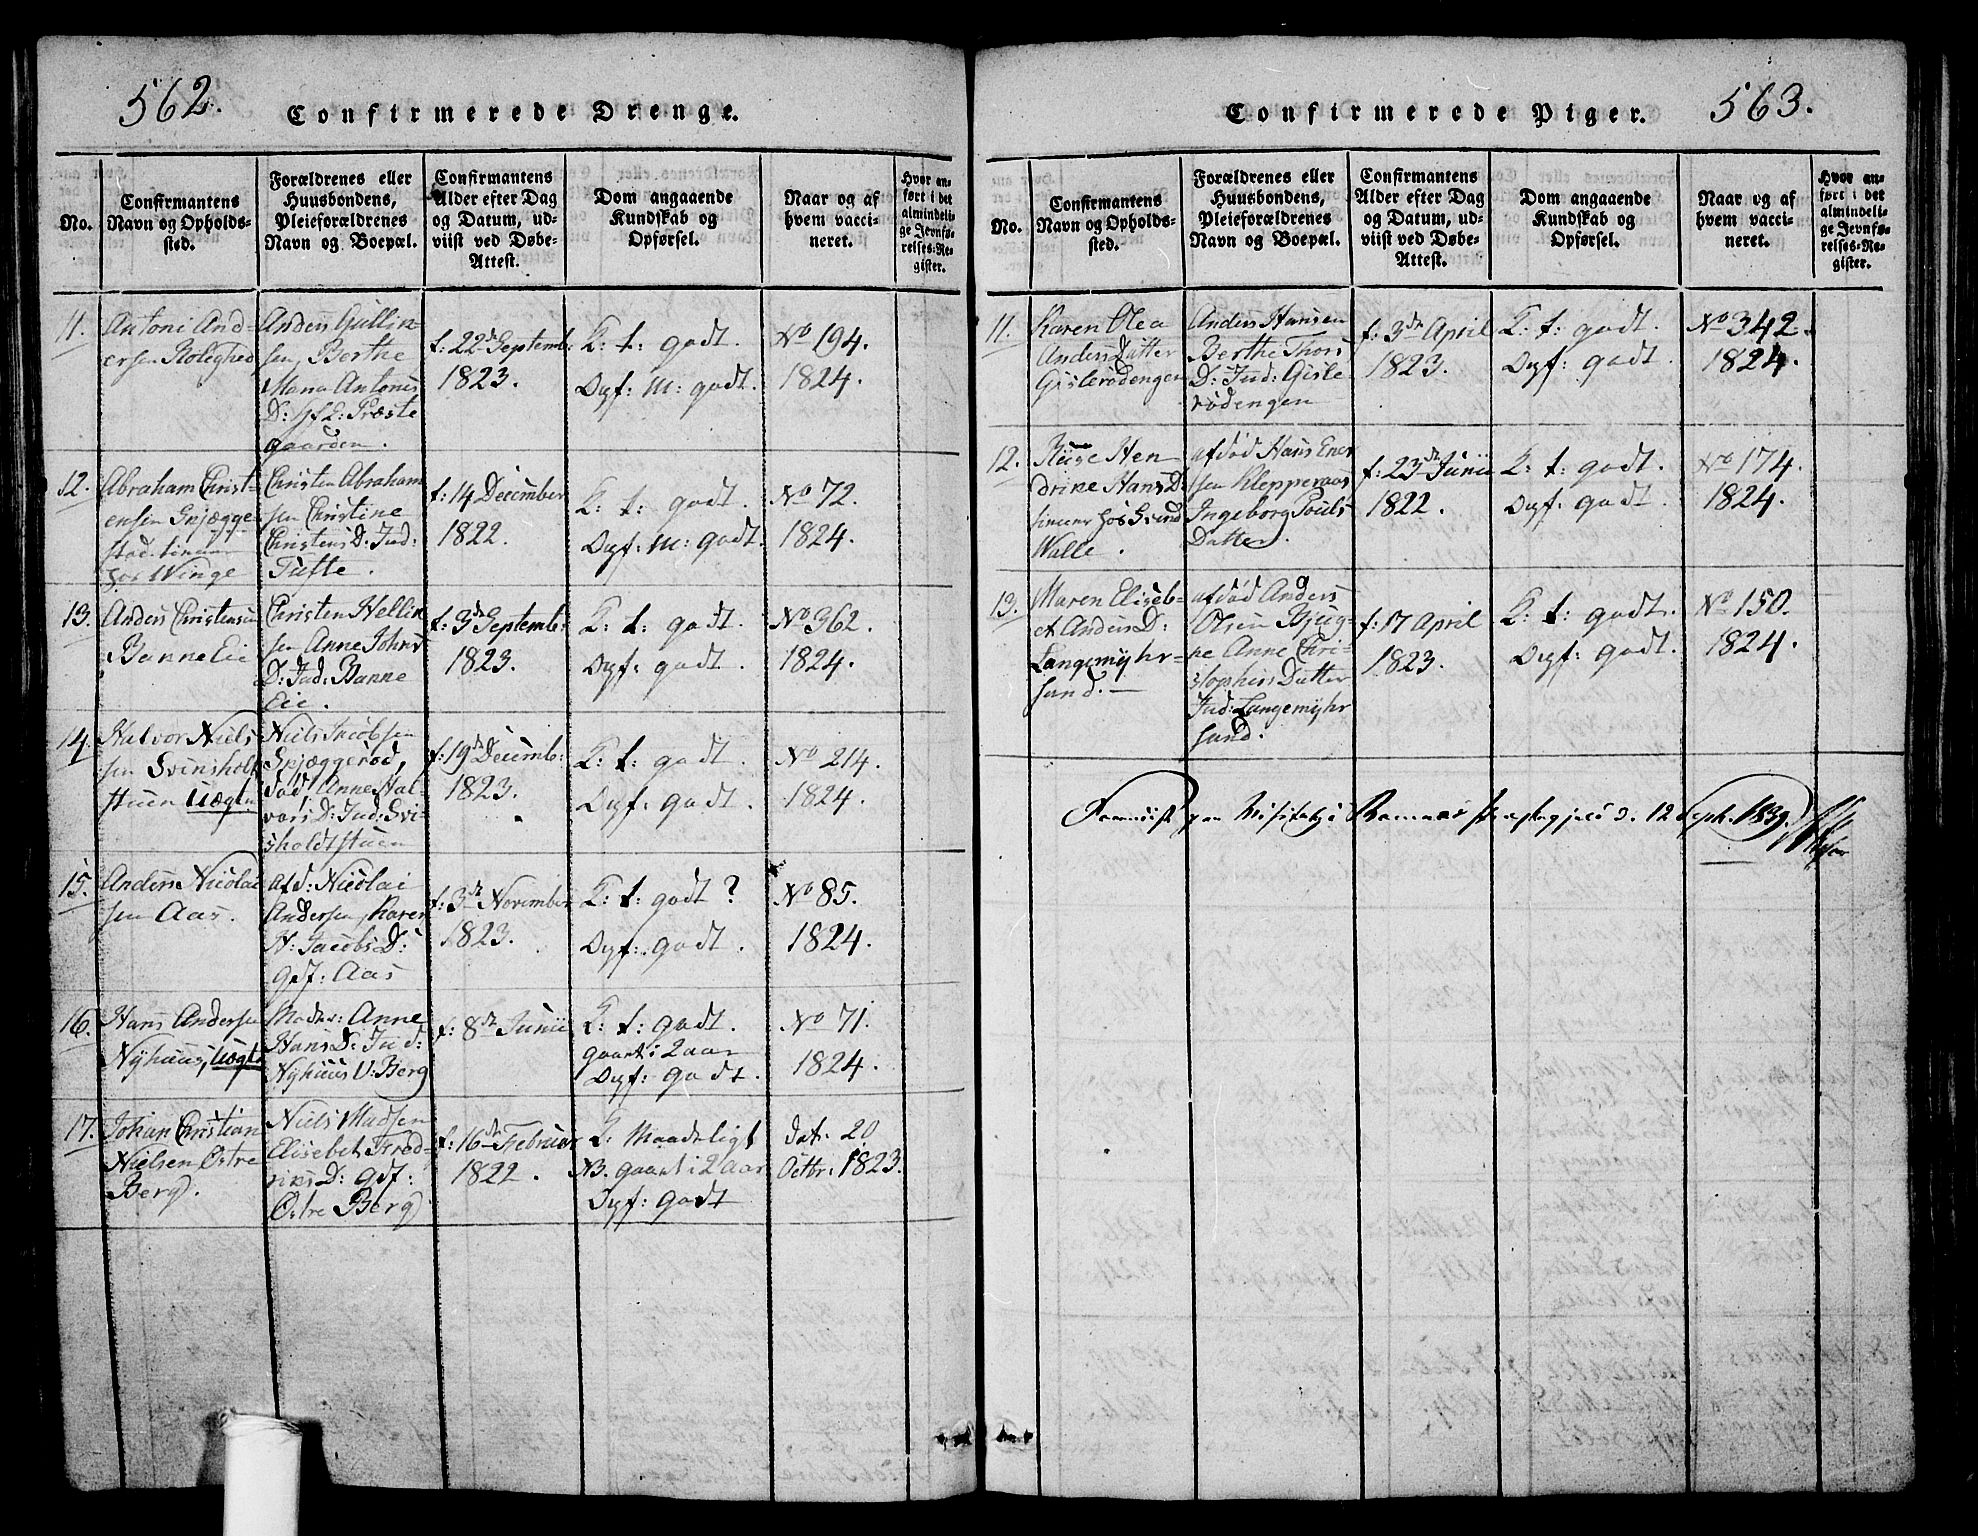 562.
Confirmerede Drenge.
No.
Confirmantens
Navn og Opholds-
sted.
Forældrenes eller
Huusbondens,
Pleieforældrenes
Navn og Boepæl.
Confirmantens
Alder efter Dag
og Datum, ud-
viist ved Døbe-
Attest.
Dom angaaende
Kundskab og
Opførsel.
Naar og af
hvem vacci-
neret.
Hvor an-
ført i det
almindeli-
ge Jevnfø-
relses-Re-
gister.
11.
Antoni And-
ersen
Anders Gullik-
sen, Berthe
Maria Antonis
D: Præste
gaarden.
f: 22de Septemb:
1823.
K: t: godt.
Opf: M: godt.
No 194.
1824.
12.
Abraham Christ-
ensen Spjægge-
stad tiener
hos Winge
Christen Abraham
sen Christine
Christens D: Ind:
Tufte.
f: 14 December
1822.
K: t: godt.
Opf: M: godt.
No 72.
1824.
13.
Anders Christensen
Banne Eie
Christen Hellik
sen Anne Johns
D: Ind: Banne
Eie.
f: 3de Septemb:
1823.
K: t: godt.
Opf: godt.
No 362.
1824.
14.
Halvor Niels
sen Svinsholt
stuen Uægte
Niels Jacobsen
Spjæggerød,
Anne Hal-
vors D: Ind: Svi
sholdtstuen
f: 19de Decemb:
1823.
K: t: godt.
Opf: godt.
No 214.
1824.
15.
Anders Nicolai
sen Aas.
afd: Nicolai
Andersen, Karen
H: Jacobs D:
gdf: Aas
f: 3de November
1823.
K: t: godt?
Opf: godt.
No 85.
1824.
16.
Hans Andersen
Nyhuus, Uægte
Moder: Anne
Hans D: Ind:
Nyhuus U: Berg
f: 8de Junii
K: t: godt.
gaaet i 2 aar
Opf: godt.
No 71.
1824.
17.
Johan Christian
Nielsen Østre
Berg.
Niels Madsen
Elisebet Fred-
riks D: gdf:
Østre Berg
f: 16de Februar
1822.
K: Maadeligt
NB. gaaet i 2 aar
Opf: godt
dat: 20
Octbr: 1823.
Confirmerede Piger.
563.
No.
Confirmantens
Navn og Opholds-
sted.
Forældrenes eller
Huusbondens,
Pleieforældrenes
Navn og Boepæl.
Confirmantens
Alder efter Dag
og Datum, ud-
viist ved Døbe-
Attest.
Dom angaaende
Kundskab og
Opførsel.
Naar og af
hvem vacci-
neret.
Hvor an-
ført i det
almindeli-
ge Jevnfø-
relses-Re-
gister.
11.
Karen Olea
Anders Datter
Gislerødengen
Anders Hansen
Berthe Thors
D: Ind: Gisle
rødengen
f: 3de April
1823.
K: t: godt.
Opf: godt.
No 342.
1824.
12.
Hen
drine Hans D:
tiener hos Svend
Walle.
afdød Hans Ener
sen Klepperaas
Ingeborg Pouls
Datter.
f: 23de Junii
1822.
K: t: godt.
Opf: godt.
No 174.
1824.
13.
Maren Eliseb-
et Anders D:
Langemyhr-
sund.
afdød Anders
Olsen Bjug-
ne Anne Chri-
stophers Datter
Ind: Langemyhr
sund.
f: 17 April
1823.
K: t: godt.
Opf: godt.
No 150.
1824.
Fremviist paa Visitats i Ramnæs Præstegjeld d. 12 Septr. 1839.